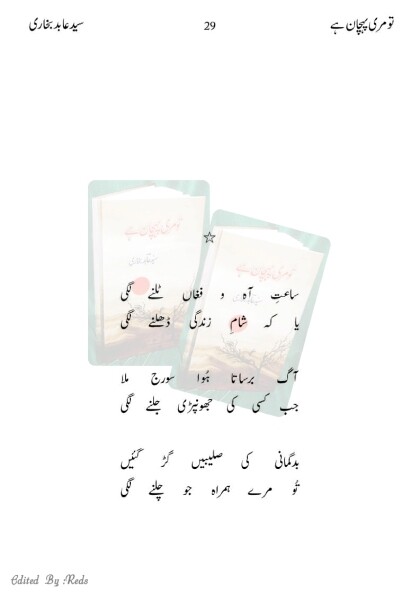 تو مری پہچان ہے 29 سید عابد بخاری
☆
ساعتِ آہ و فغاں ٹلنے لگی
یا کہ شامِ زندگی ڈھلنے لگی
آگ برساتا ہُوا سورج ملا
جب کسی کی جھونپڑی جلنے لگی
بدگمانی کی صلیبیں گڑ گئیں
تُو مرے ہمراہ جو چلنے لگی
Edited By Reds